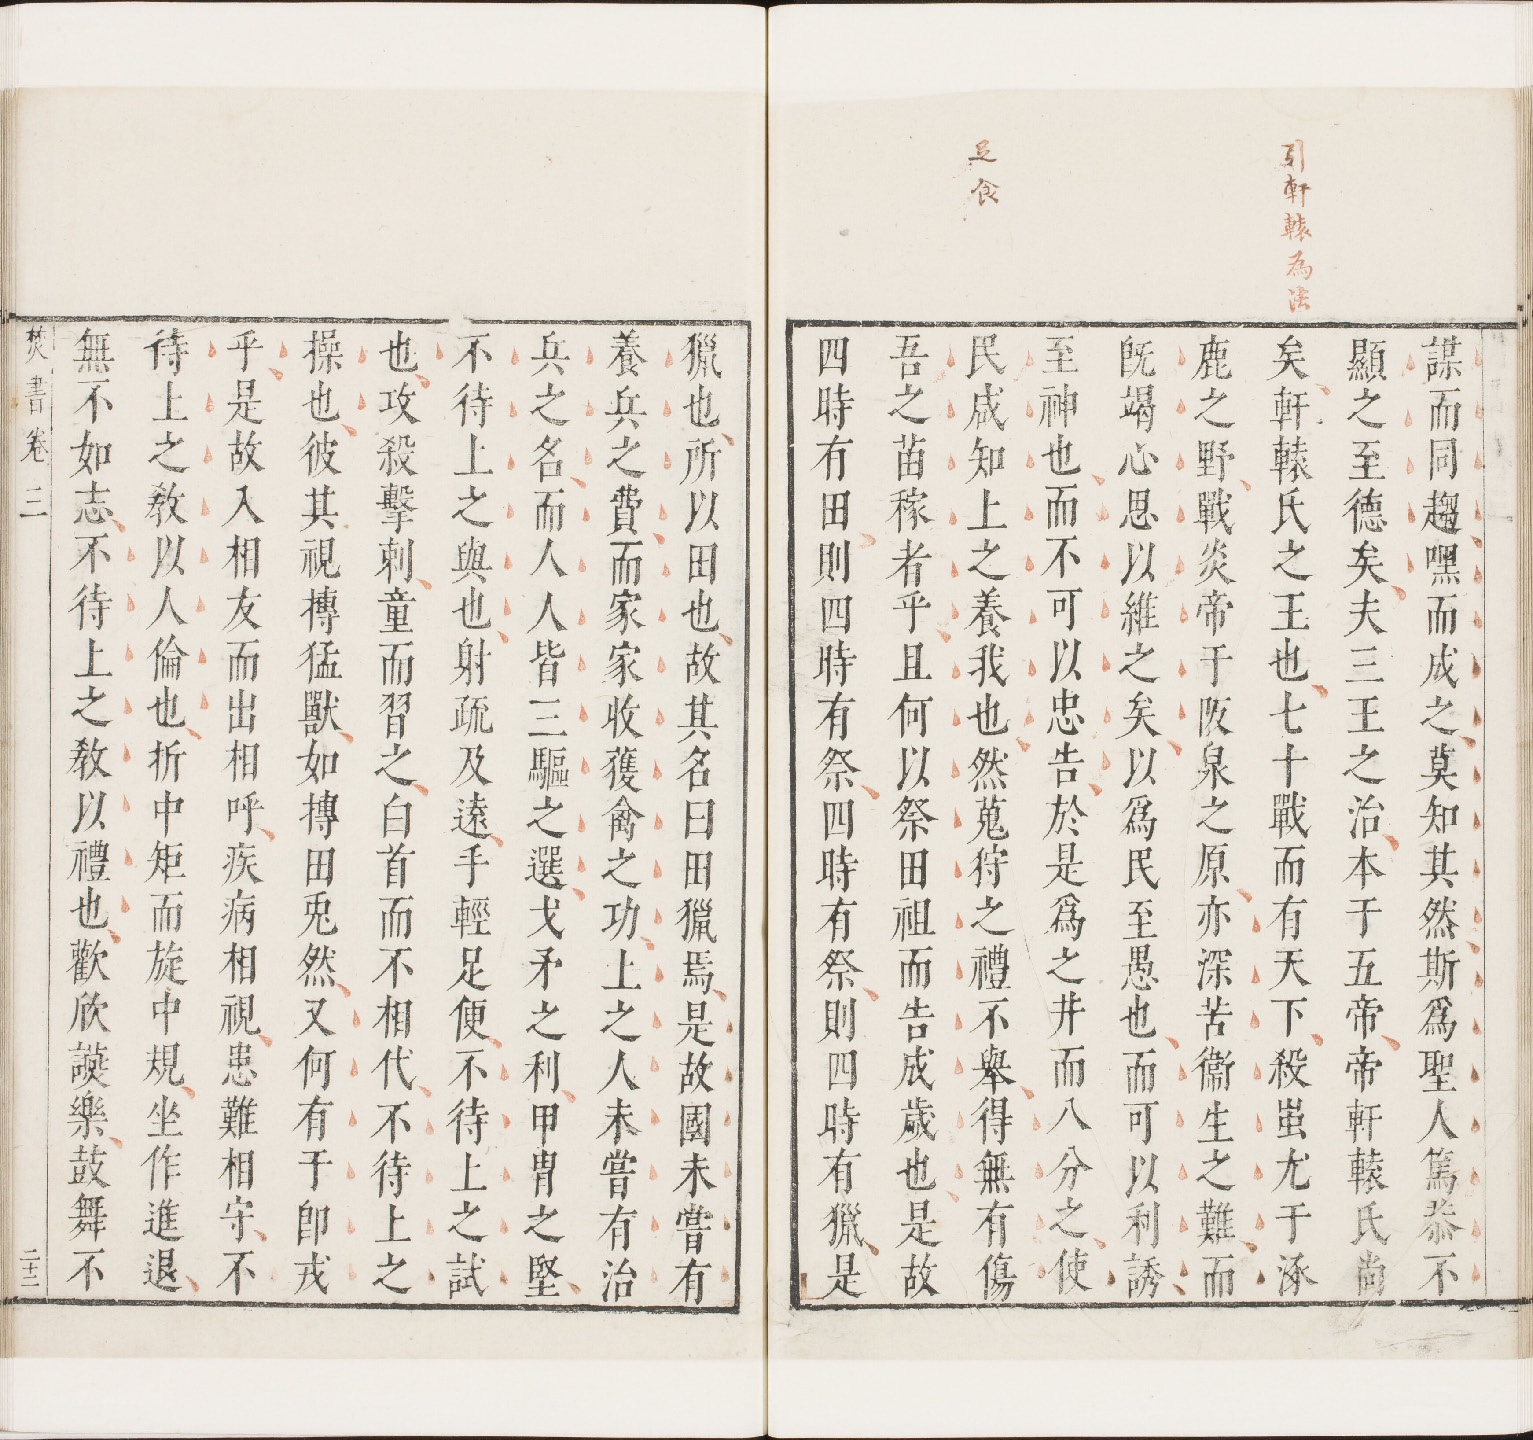 引軒轅為法
足食
謀而同趨嘿而成之莫知其然斯爲聖人篤恭不
顯之至德矣夫三王之治本于五帝帝軒轅氏尚
矣軒轅氏之王也七十戰而有天下殺蚩尤于涿
鹿之野戰炎帝于阪泉之原亦深苦衞生之難而
旣竭心思以維之矣以爲民至愚也而可以利誘
至神也而不可以忠告於是爲之井而八分之使
民咸知上之養我也然蒐狩之禮不舉得無有傷
吾之苗稼者乎且何以祭田祖而告成歲也是故
四時有田則四時有祭四時有祭則四時有獵是
獵也所以田也故其名曰田獵焉是故國未嘗有
養兵之費而家家收獲禽之功上之人未嘗有治
兵之名而人人皆三驅之選戈矛之利甲冑之堅
不待上之與也射疏及遠手輕足便不待上之試
也攻殺擊刺童而習之白首而不相代不待上之
操也彼其視摶猛獸如摶田兎然又何有于卽戎
乎是故入相友而出相呼疾病相視患難相守不
待上之敎以人倫也折中矩而旋中規坐作進退
無不如志不待上之敎以禮也歡欣讌樂鼓舞不
焚書卷三
二十二